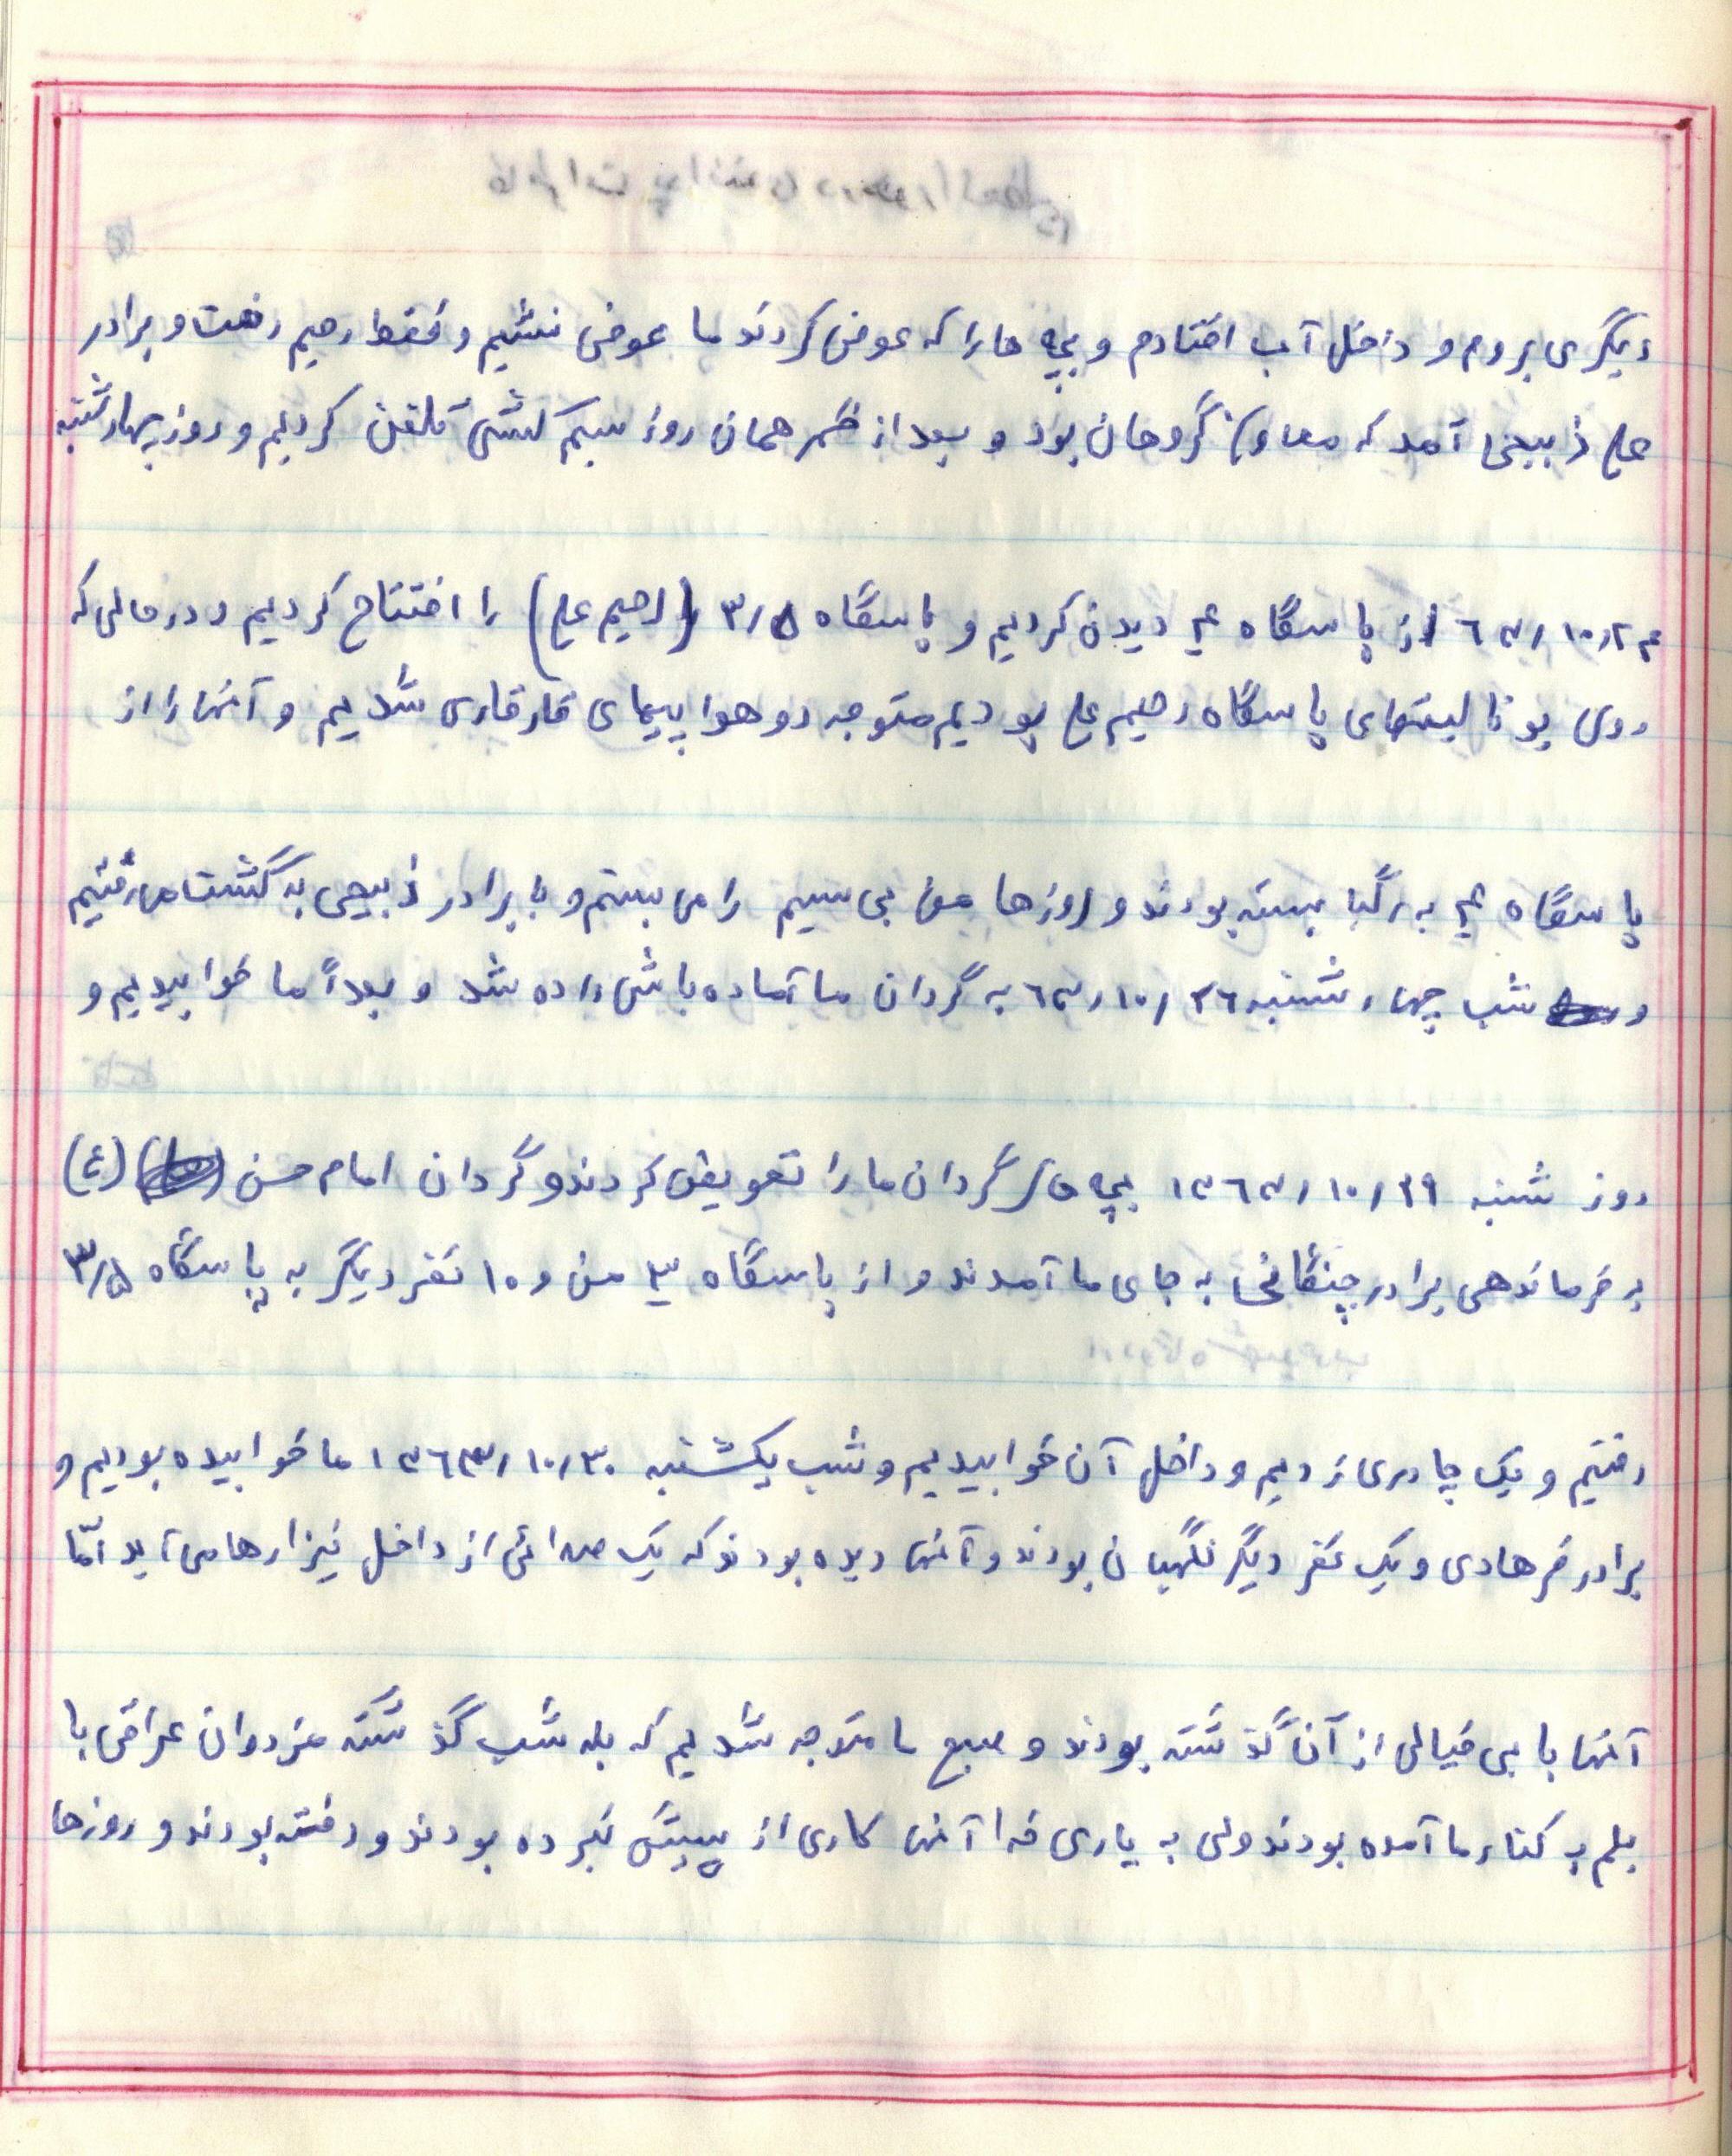 دیگری بروم و داخل آب افتادم و بچه ها را که عوض کردند ما عوض نشیم و فقط رحیم رفت و برادر
علی ذبیحی آمد که معاون گروهان بود و بعد از ظهر همان روز سیم کشی تلفن کردیم و روز چهارشنبه
۶۳/۱۰/۲۴ از پاسگاه ۴ دیدن کردیم و پاسگاه ۳/۵ (رحیم علی) را افتتاح کردیم و در حالی که
روی یونالیتهای پاسگاه رحیم علی بودیم متوجه دو هواپیمای قارقاری شدیم و آنها را از
پاسگاه ۴ به رگبار بسته بودند و روزها من بی سیم را می بستم و با برادر ذبیحی به گشت می رفتیم
و شب چهارشنبه ۶۳/۱۰/۲۶ به گردان ما آماده باش داده شد و بعداً ما خوابیدیم و
روز شنبه ۱۳۶۳/۱۰/۲۹ بچه های گردان ما را تعویض کردند و گردان امام حسن (ع)
به فرماندهی برادر چنگائی به جای ما آمدند و از پاسگاه ۳ من و ۱۰ نفر دیگر به پاسگاه ۳/۵
رفتیم و یک چادری زدیم و داخل آن خوابیدیم و شب یکشنبه ۱۳۶۳/۱۰/۳۰ ما خوابیده بودیم و
برادر فرهادی و یک نفر دیگر نگهبان بودند و آنها دیده بودند که یک صدائی از داخل نیزارها می آید امّا
آنها با بی خیالی از آن گذشته بودند و صبح ما متوجه شدیم که بله شب گذشته مزدوران عراقی با
بلم به کنار ما آمده بودند ولی به یاری خدا آنها کاری از پیش نبرده بودند و رفته بودند و روزها